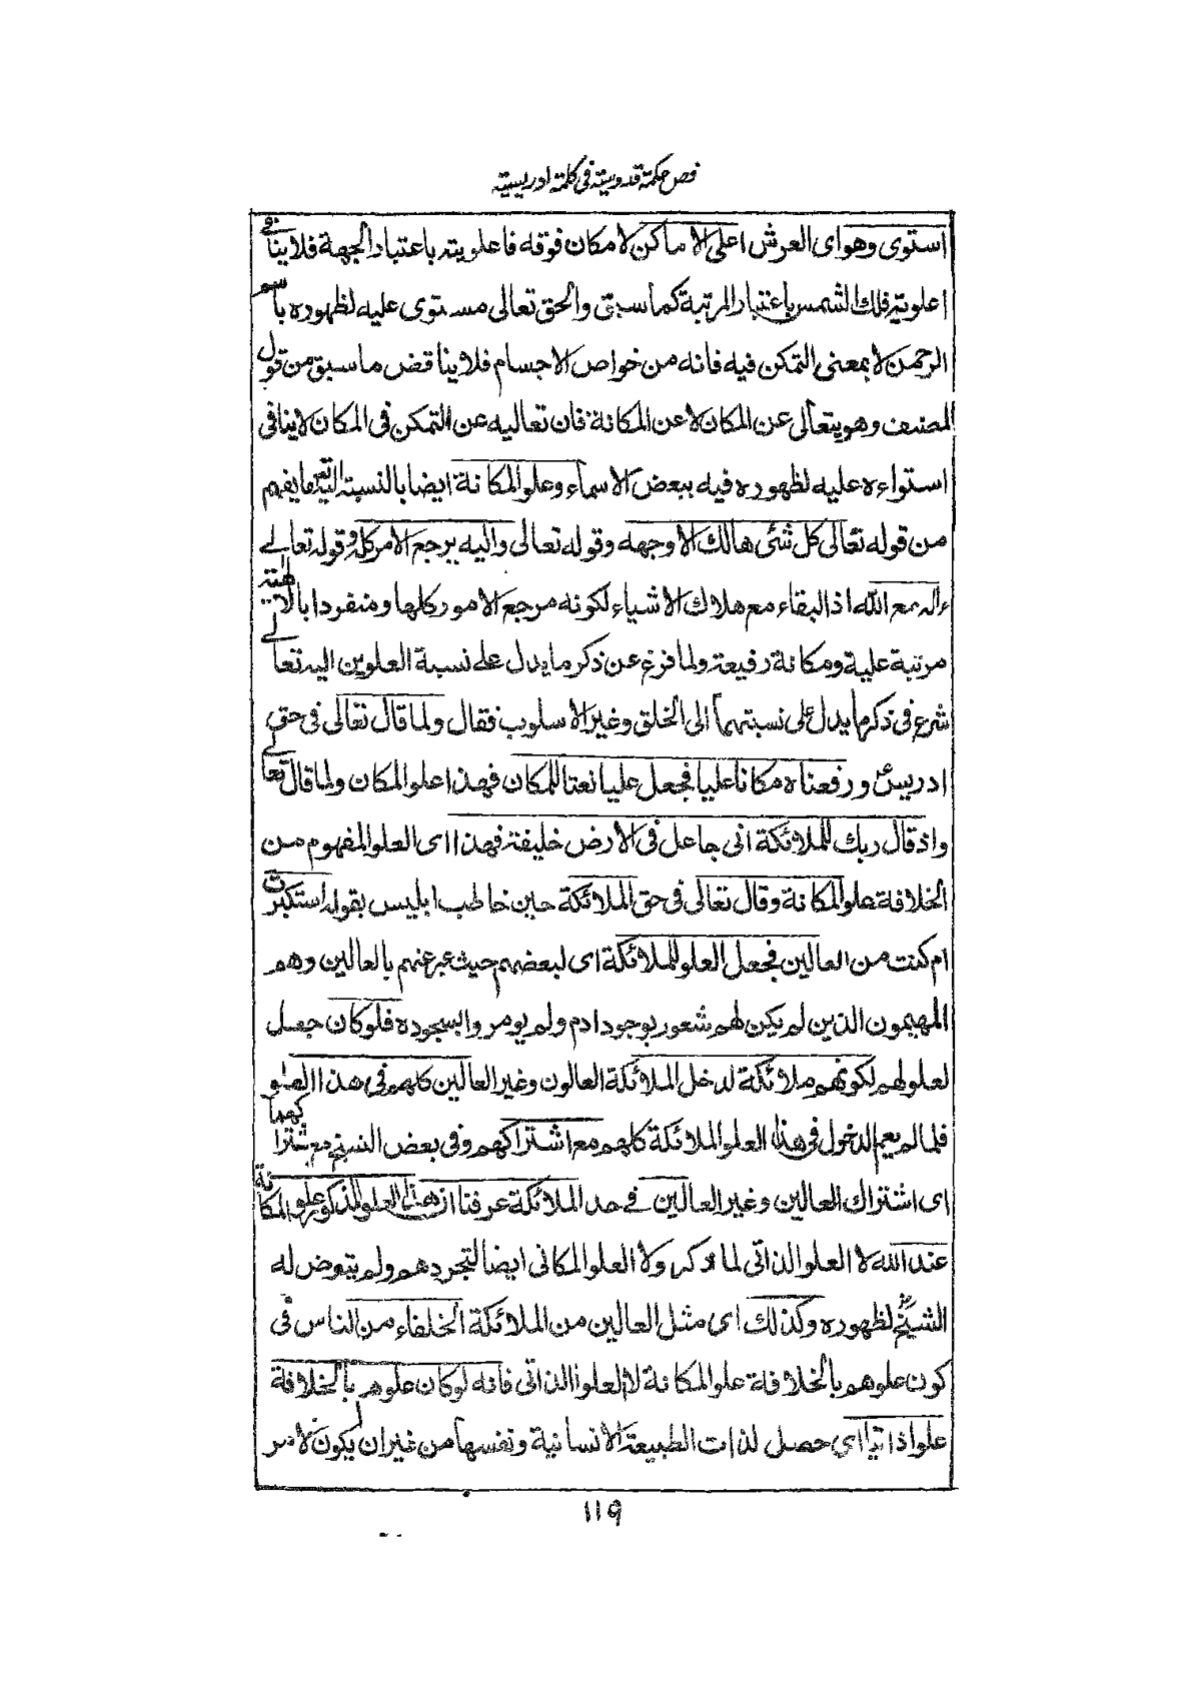 فص حكمة قدوسية في كلمة ادريسية
استوى وهو اى العرش اعلى الاماكن لا مكان فوقه فاعلويته باعتبار الجهة فلا ينافى
اعلوية فلك الشمس باعتبار المرتبة كما سبق والحق تعالى مستوى عليه لظهوره باسم
الرحمن لا بمعنى التمكن فيه فانه من خواص الاجسام فلا يناقض ما سبق من قول
المصنف وهو يتعالى عن المكان لا عن المكانة فان تعاليه عن التمكن فى المكان لا ينافى
استواءه عليه لظهوره فيه ببعض الاسماء وعلو المكانة ايضا بالنسبة اليه تع ما يفهم
من قوله تعالى كل شئ هالك الا وجهه وقوله تعالى واليه يرجع الامر كله وقوله تعالے
ءاله مع الله اذ البقاء مع هلاك الاشياء لكونه مرجع الامور كلها ومنفردا بالالهية
مرتبة علية ومكانة رفيعة ولما فرغ عن ذكر ما يدل علے نسبة العلوين اليه تعالے
شرع فى ذكر ما يدل على نسبتهما الى الخلق وغير الاسلوب فقال ولما قال تعالى فى حق
ادريسؑ ورفعناه مكانا عليا فجعل عليا نعتا للمكان فهذا علو المكان ولما قال تعالے
واذ قال ربك للملائكة انى جاعل فى الارض خليفة فهذا اى العلو المفهوم من
الخلافة علو المكانة وقال تعالى فى حق الملائكة حين خاطب ابليس بقوله استكبرت
ام كنت من العالين فجعل العلو للملائكة اى لبعضهم حيث عبر عنهم بالعالين وهم
المهيمون الذين لم يكن لهم شعور بوجود ادم ولم يومروا بسجوده فلو كان جعل
لعلو لهم لكونهم ملائكة لدخل الملائكة العالون وغير العالين كلهم فى هذا العلو
فلما لم يعم الدخول فى هذا العلو الملائكة كلهم مع اشتراكهم وفى بعض النسخ مع اشتراكهما
اى اشتراك العالين وغير العالين فے حد الملائكة عرفنا ان هذا اى العلو المذكور علو المكانة
عند الله لا العلو الذاتى لما ذكر ولا العلو المكانى ايضا لتجردهم ولم يتعرض له
الشيخؓ لظهوره وكذلك اى مثل العالين من الملائكة الخلفاء من الناس فى
كون علوهم بالخلافة علو المكانة لا العلو الذاتى فانه لو كان علوهم بالخلافة
علوا ذاتيا اى حصل لذات الطبيعة الانسانية ونفسها من غير ان يكون لامر
١١٩